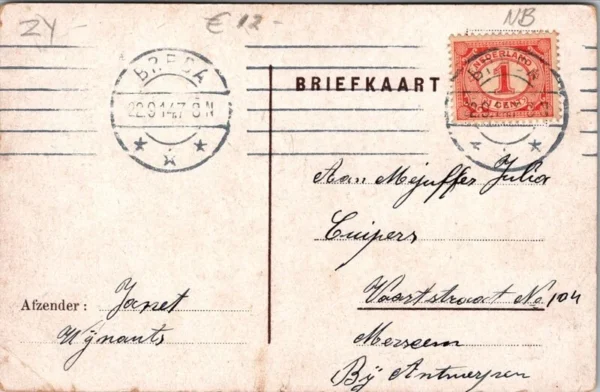 ZY-
€ 12 -
NB
BREDA
22.9.14 7-8 N
BRIEFKAART
NEDERLAND
1
CENT
Aan Mejuffer Julia
Cuipers
Vaartstraat No 104
Merxem
Bij Antwerpen
Afzender: Janet
Wijnants